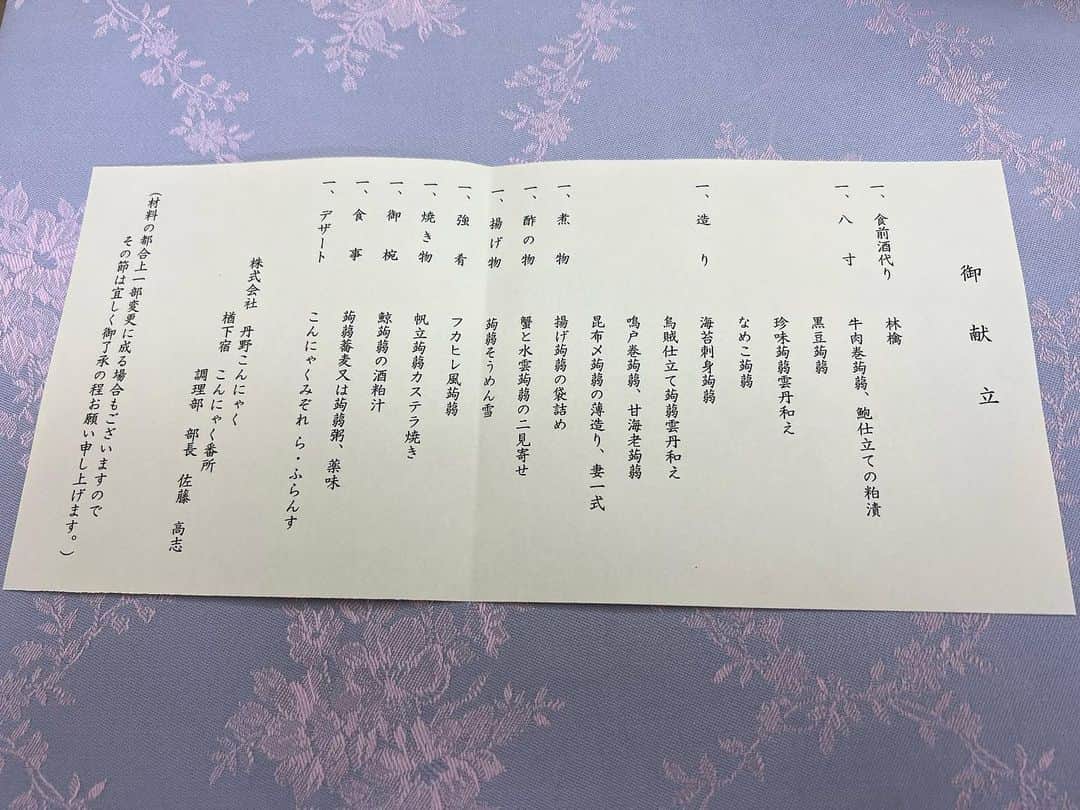 御献立
一、食前酒代り
林檎
一、八寸
牛肉巻蒟蒻、鮑仕立ての粕漬
黒豆蒟蒻
珍味蒟蒻雲丹和え
なめこ蒟蒻
一、造り
海苔刺身蒟蒻
烏賊仕立て蒟蒻雲丹和え
鳴戸巻蒟蒻、甘海老蒟蒻
昆布〆蒟蒻の薄造り、妻一式
一、煮物
揚げ蒟蒻の袋詰め
一、酢の物
蟹と水雲蒟蒻の二見寄せ
一、揚げ物
蒟蒻そうめん雪
一、強肴
フカヒレ風蒟蒻
一、焼き物
帆立蒟蒻カステラ焼き
一、御椀
鯨蒟蒻の酒粕汁
一、食事
蒟蒻蕎麦又は蒟蒻粥、薬味
一、デザート
こんにゃくみぞれ ら・ふらんす
株式会社 丹野こんにゃく
楢下宿 こんにゃく番所
調理部 部長 佐藤 高志
(材料の都合上一部変更に成る場合もございますので
その節は宜しく御了承の程お願い申し上げます。)